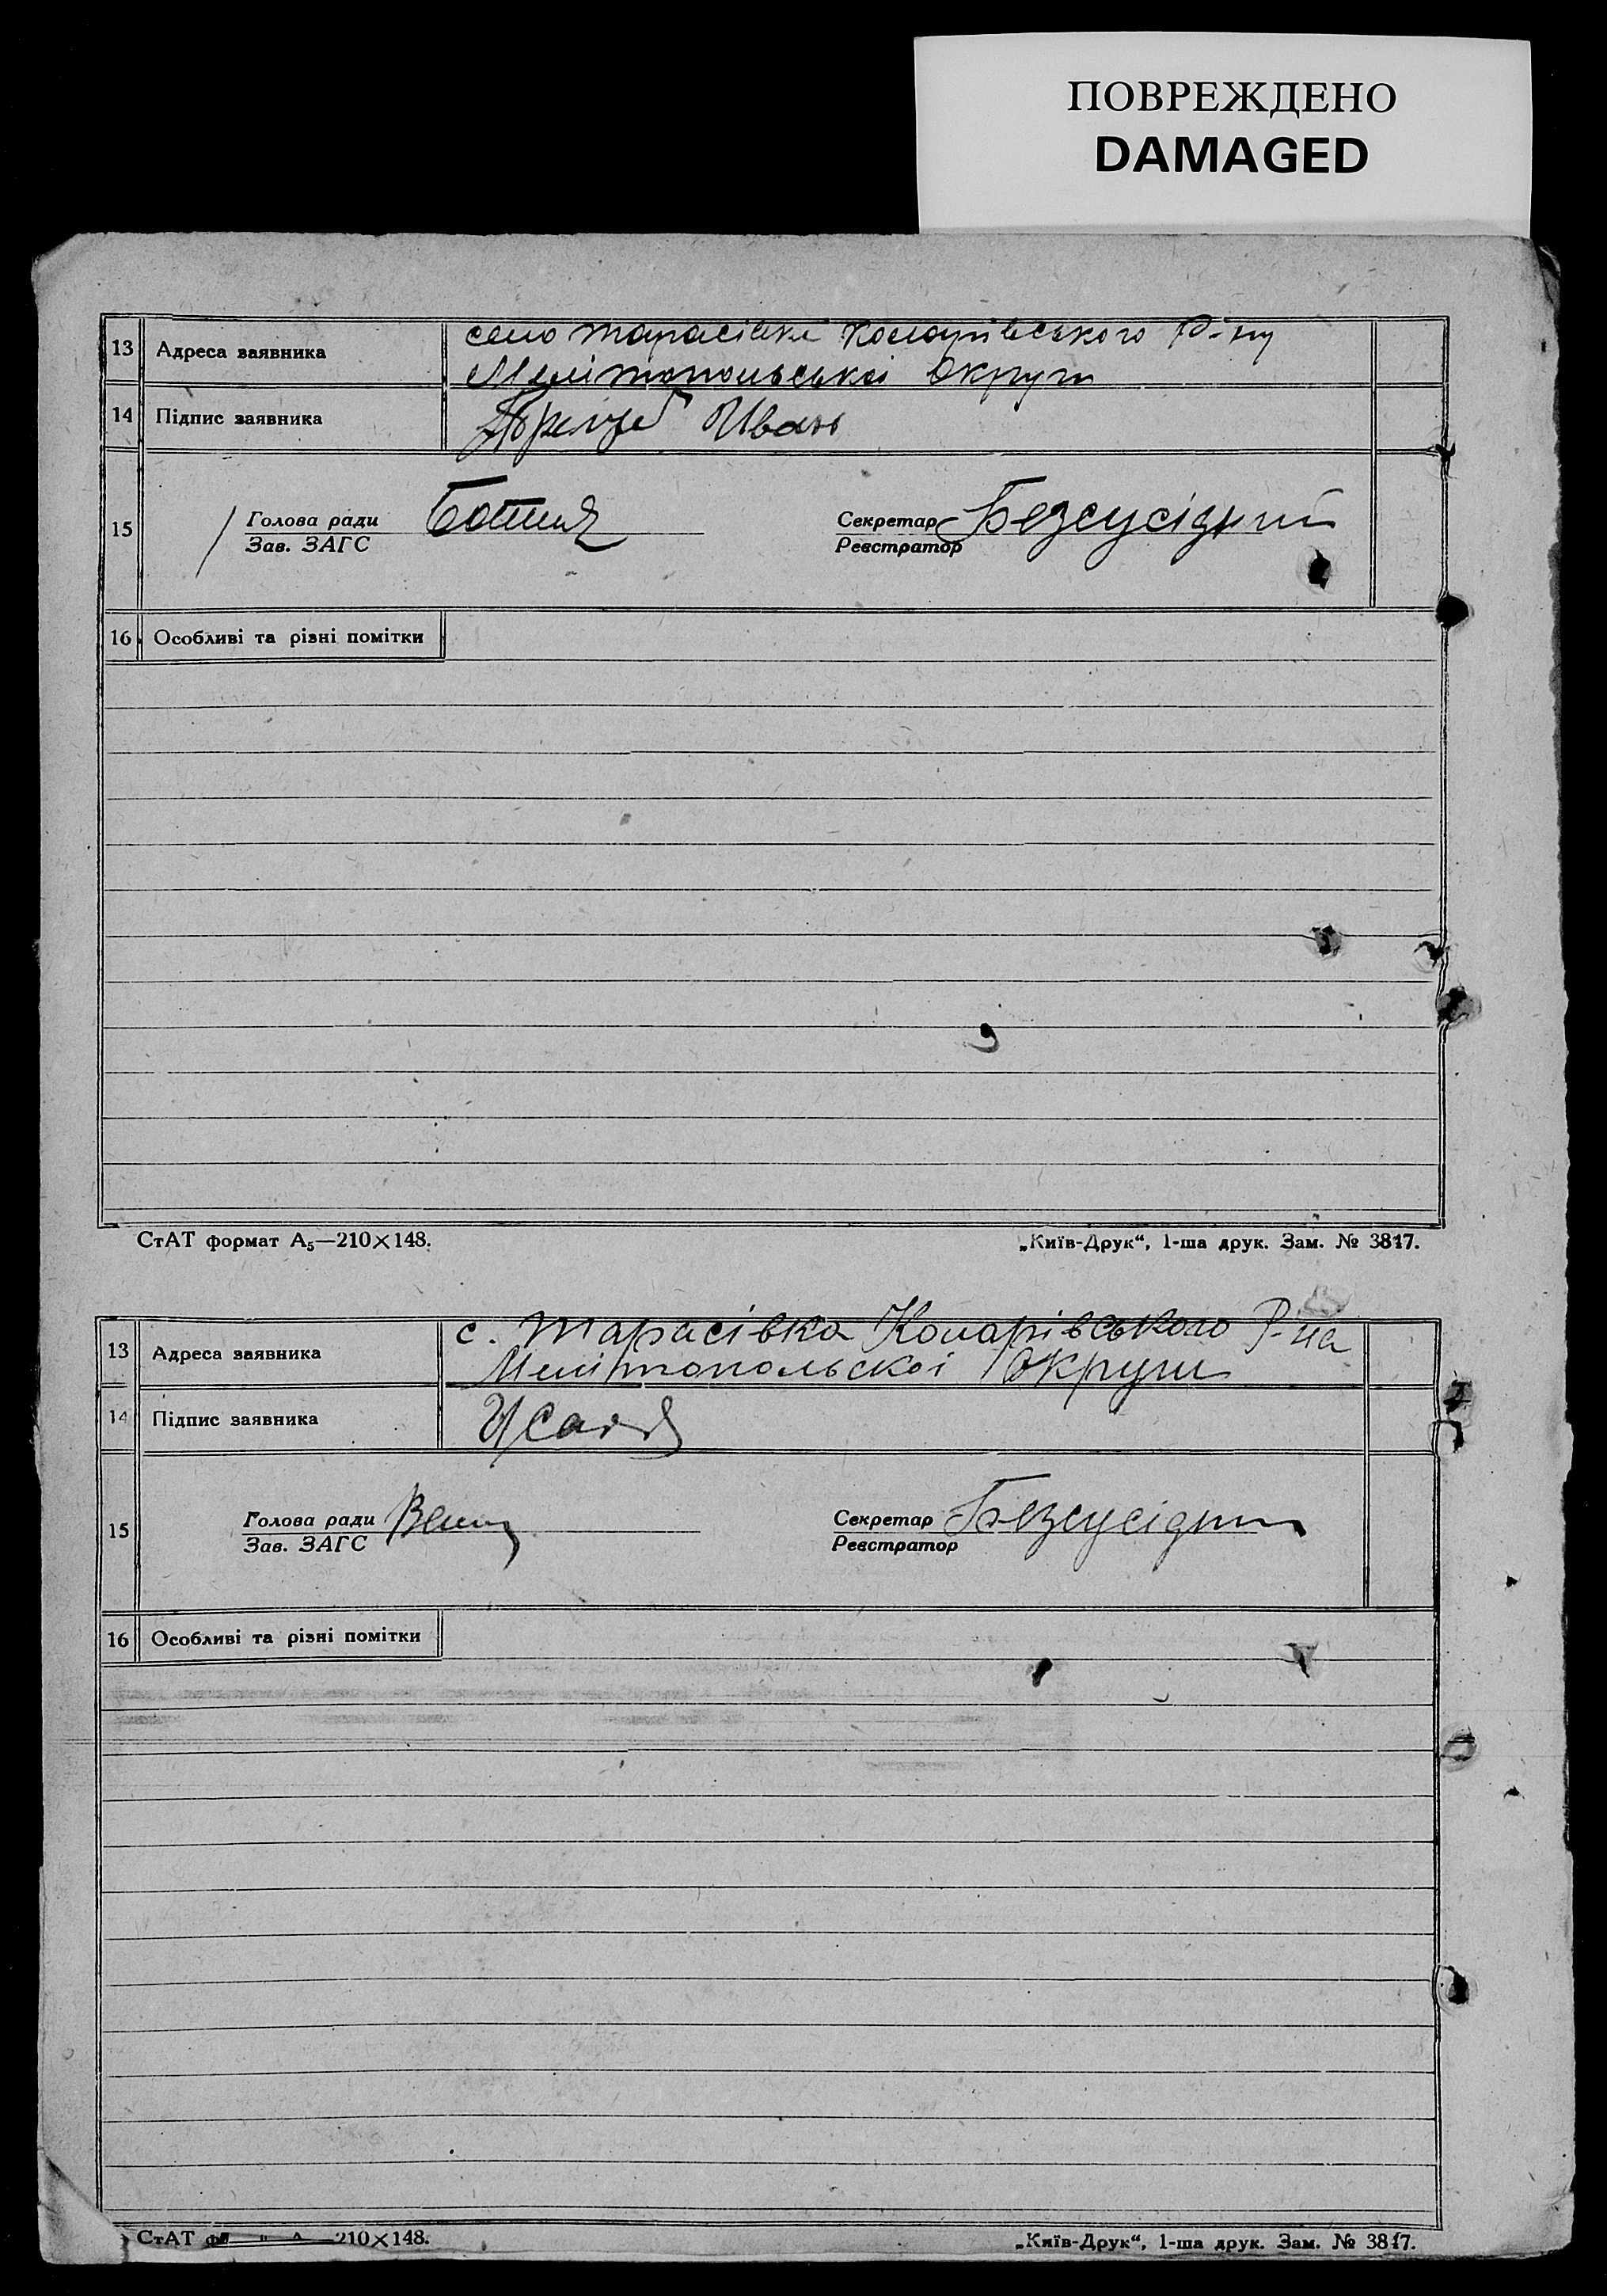 ПОВРЕЖДЕНО
DAMAGED
13 Адреса заявника село Тарасівка Комарівського Р-ну
Мелітопольської Округи
14 Підпис заявника Иван
15 Голова ради Секретар Безсусідний
Зав. ЗАГС Реєстратор
16 Особливі та різні помітки
СтАТ формат А₅—210×148. „Київ-Друк“, 1-ша друк. Зам. № 3817.
13 Адреса заявника с. Тарасівка Комарівського Р-на
Мелітопольскої Округи
14 Підпис заявника
15 Голова ради Секретар Безсусідний
Зав. ЗАГС Реєстратор
16 Особливі та різні помітки
СтАТ 210×148. „Київ-Друк“, 1-ша друк. Зам. № 3817.